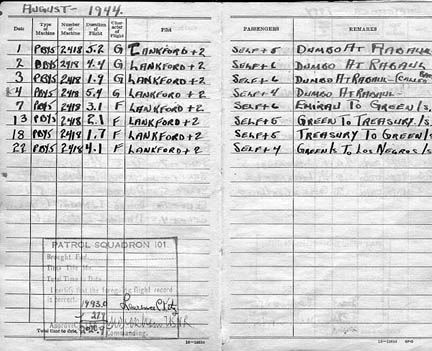 AUGUST - 1944.
Date Type of Machine Number of Machine Duration of Flight Character of Flight Pilot PASSENGERS REMARKS
1 PBY5 2418 5.2 G LANKFORD+2 SELF+5 DUMBO AT RABAUL
2 PBY5 2418 4.4 G LANKFORD+2 SELF+6 DUMBO AT RABAUL
3 PBY5 2418 1.9 G LANKFORD+2 SELF+6 DUMBO AT RABAUL-(CALLED
4 PBY5 2418 5.4 G LANKFORD+2 SELF+4 DUMBO AT RABAUL-
7 PBY5 2418 3.1 F LANKFORD+2 SELF+6 EMIRAU TO GREEN Is.
13 PBY5 2418 2.1 F LANKFORD+2 SELF+5 GREEN TO TREASURY.Is
18 PBY5 2418 1.7 F LANKFORD+2 SELF+5 TREASURY TO GREEN Is
22 PBY5 2418 4.1 F LANKFORD+2 SELF+4 GREEN Is TO LOS NEGROS Is.
PATROL SQUADRON 101
Brought Fwd.
Time This Mo.
Total Time to Date
I certify that the foregoing flight record
is correct.
Approved
Commanding.
Total time to date,